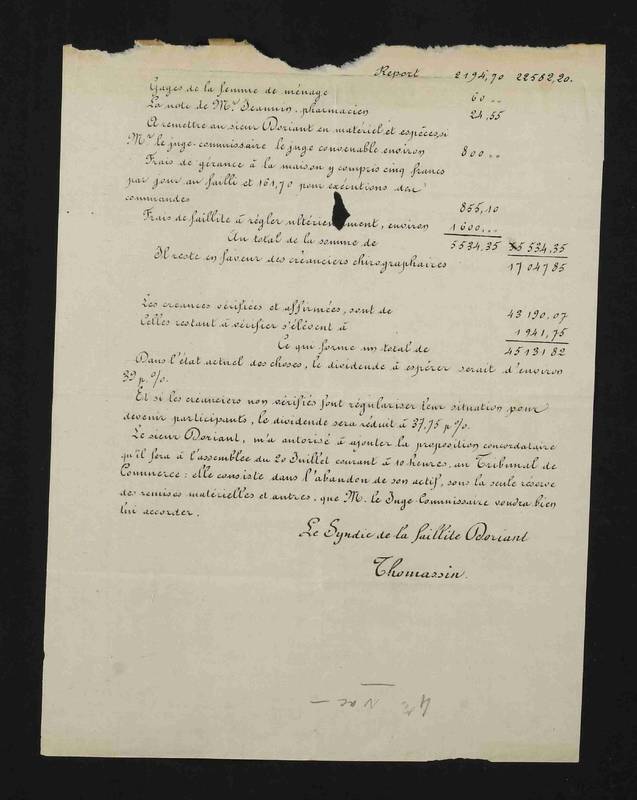 Report 2194,70 22582,20.
Gages de la femme de ménage 60 ..
La note de Mr Jeannin, pharmacien 24,55
A remettre au sieur Doriant en matériel et espèces, si
Mr le juge-commissaire le juge convenable environ 800 ..
Frais de gérance à la maison y compris cinq francs
par jour au failli et 161,70 pour exécutions des
commandes 855,10
Frais de faillite à régler ultérieurement, environ 1600 ...
Au total de la somme de 5534,35 5534,35
Il reste en faveur des créanciers chirographaires 17047 85
Les créances vérifiées et affirmées, sont de 43190,07
Celles restant à vérifier s'élèvent à 1941,75
Ce qui forme un total de 45131 82
Dans l'état actuel des choses, le dividende à espérer serait d'environ
39 p%.
Et si les créanciers non vérifiés font régulariser leur situation pour
devenir participants, le dividende sera réduit à 37,75 p%.
Le sieur Doriant, m'a autorisé à ajouter la proposition concordataire
qu'il fera à l'assemblée du 20 Juillet courant à 10 heures, au Tribunal de
Commerce : elle consiste dans l'abandon de son actif, sous la seule réserve
des remises matérielles et autres, que M. le Juge-Commissaire voudra bien
lui accorder.
Le Syndic de la faillite Doriant
Thomassin.